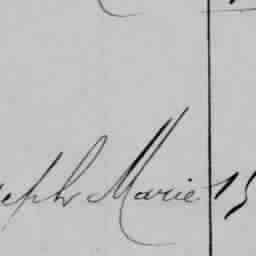 seph Marie 15